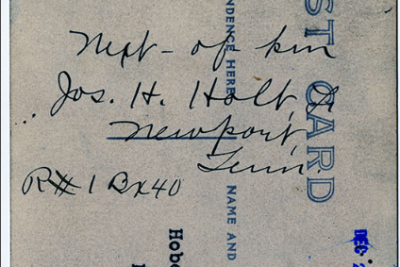 Next - of kin
Jos. H. Holt, Jr
Newport,
Tenn
R#1 Bx40
ST CARD
NDENCE HERE
NAME AND
Hobe
DEC 2